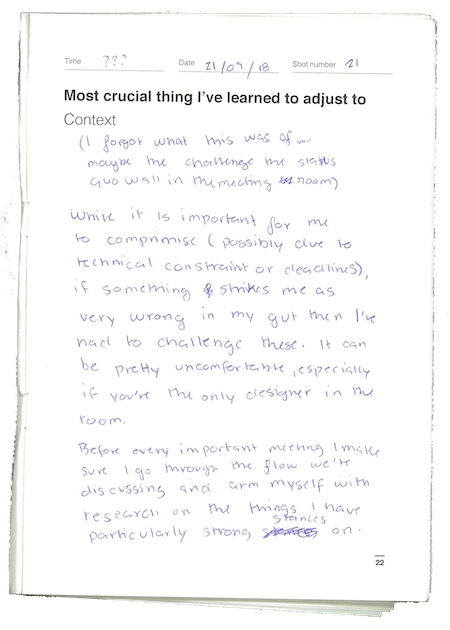 Time ??? Date 21/09/18 Shot number 21
Most crucial thing I've learned to adjust to
Context
(I forgot what this was of ...
maybe the challenge the status
quo wall in the meeting room)
While it is important for me
to comprimise (possibly due to
technical constraint or deadlines),
if something strikes me as
very wrong in my gut then I've
had to challenge these. It can
be pretty uncomfortable, especially
if you're the only designer in the
room.
Before every important meeting I make
sure I go through the flow we're
discussing and arm myself with
research on the things I have
particularly strong stances on.
22